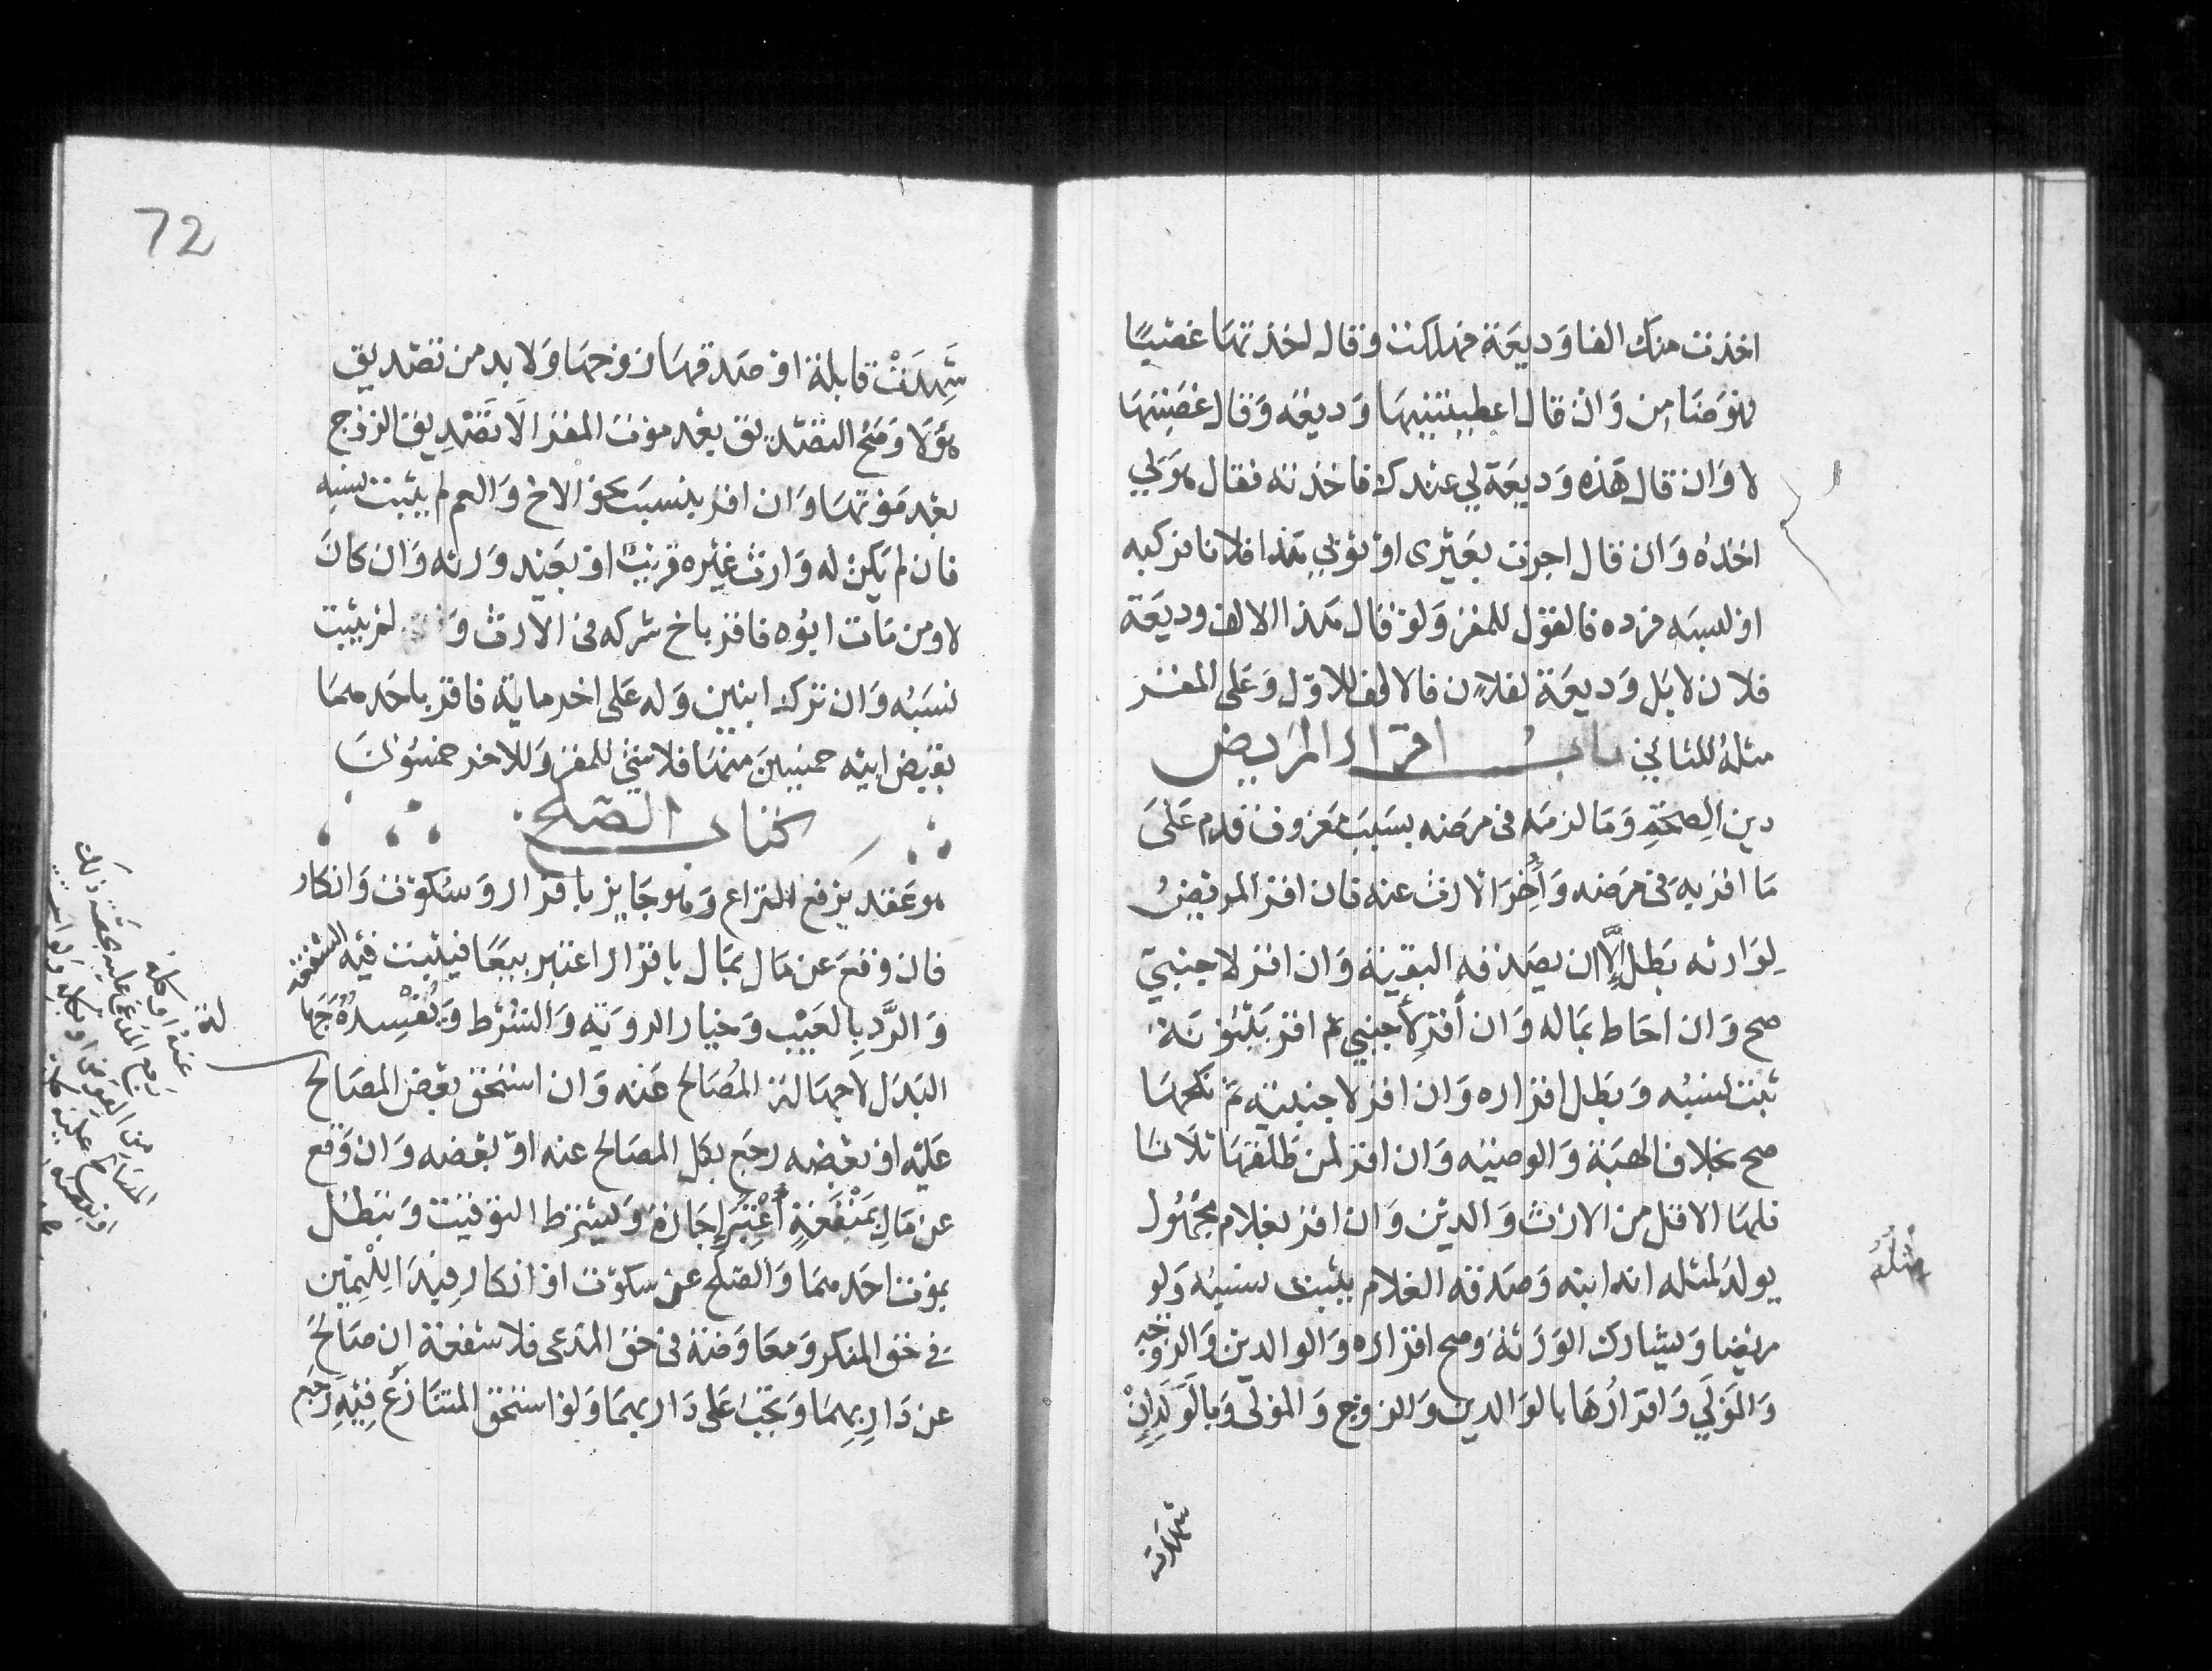 اخذت منك الفا وديعة فهلكت وقال اخذتها غصبا
فهو ضامن وان قال اعطيتنيها وديعة وقال غصبتها
لا وان قال هذه وديعة لي عندك فاخذته فقال هو لي
اخذه وان قال اجرت بعيرى او ثوبي هذا فلانا فركبه
او لبسه فرده فالقول للمقر ولو قال هذا الالف وديعة
فلان لا بل وديعة لفلان فالالف للاول وعلى المقر
مثله للثاني باب اقرار المريض
دين الصحة وما لزمه فى مرضه بسبب معروف قدم على
ما اقر به فى مرضه وأخر الارث عنه فان اقر المريض
لوارثه بطل إلا ان يصدقه البقية وان اقر لاجنبي
صح وان احاط بماله وان أقر لأجنبي ثم اقر ببنوته
ثبت نسبه وبطل اقراره وان اقر لاجنبية ثم نكحها
صح بخلاف الهبة والوصية وان اقر لمن طلقها ثلاثا
فلها الاقل من الارث والدين وان اقر بغلام مجهول
يولد لمثله انه ابنه وصدقه الغلام يثبت نسبه ولو
مريضا ويشارك الورثة وصح اقراره والوالدين والزوجة
والمولي واقرارها بالوالدين والزوج والمولى وبالولد إن
مثله
شهدت
72
شهدت قابلة او صدقها زوجها ولا بد من تصديق
هؤلا وصح التصديق بعد موت المقر الا تصديق الزوج
بعد موتها وان اقر بنسب نحو الاخ والعم لم يثبت نسبه
فان لم يكن له وارث غيره قريب او بعيد ورثه وان كان
لا ومن مات ابوه فاقر باخ شركه فى الارث و لم يثبت
نسبه وان ترك ابنين وله على اخر ماية فاقر باحدهما
بقبض ابيه خمسين منها فلا شئ للمقر وللاخر خمسونا
كتاب الصلح
هو عقد يرفع النزاع وهو جايز باقرار وسكوت وانكار
فان وقع عن مال بمال باقرار اعتبر بيعا فيثبت فيه الشفعة
والرد بالعيب وخيار الروية والشرط ويفسده جها
البدل لا جهالة المصالح عنه وان استحق بعض المصالح
عليه او بعضه رجع بكل المصالح عنه او بعضه وان وقع
عن مال بمنفعة أعتبر إجارة ويشترط التوقيت ويبطل
بموت احدهما والصلح عن سكوت او انكار فيدا لليمين
في حق المنكر ومعاوضة فى حق المدعى فلا شفعة إن صالح
عن دار بهما وتجب على دار بهما ولو استحق المتنازع فيه رجع
لة
عنه او كله
رجع المدعى عليه بحصة ذلك
من العوض او بكله ولو است